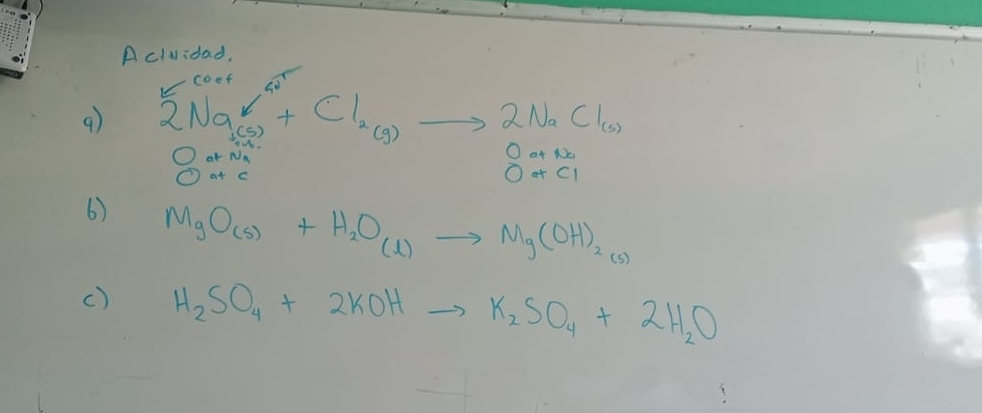 Actividad.
coef
a) 2Na(s) + Cl₂(g) → 2NaCl(s)
O at Na O at Na
O at C O at Cl
b) MgO(s) + H₂O(l) → Mg(OH)₂(s)
c) H₂SO₄ + 2KOH → K₂SO₄ + 2H₂O